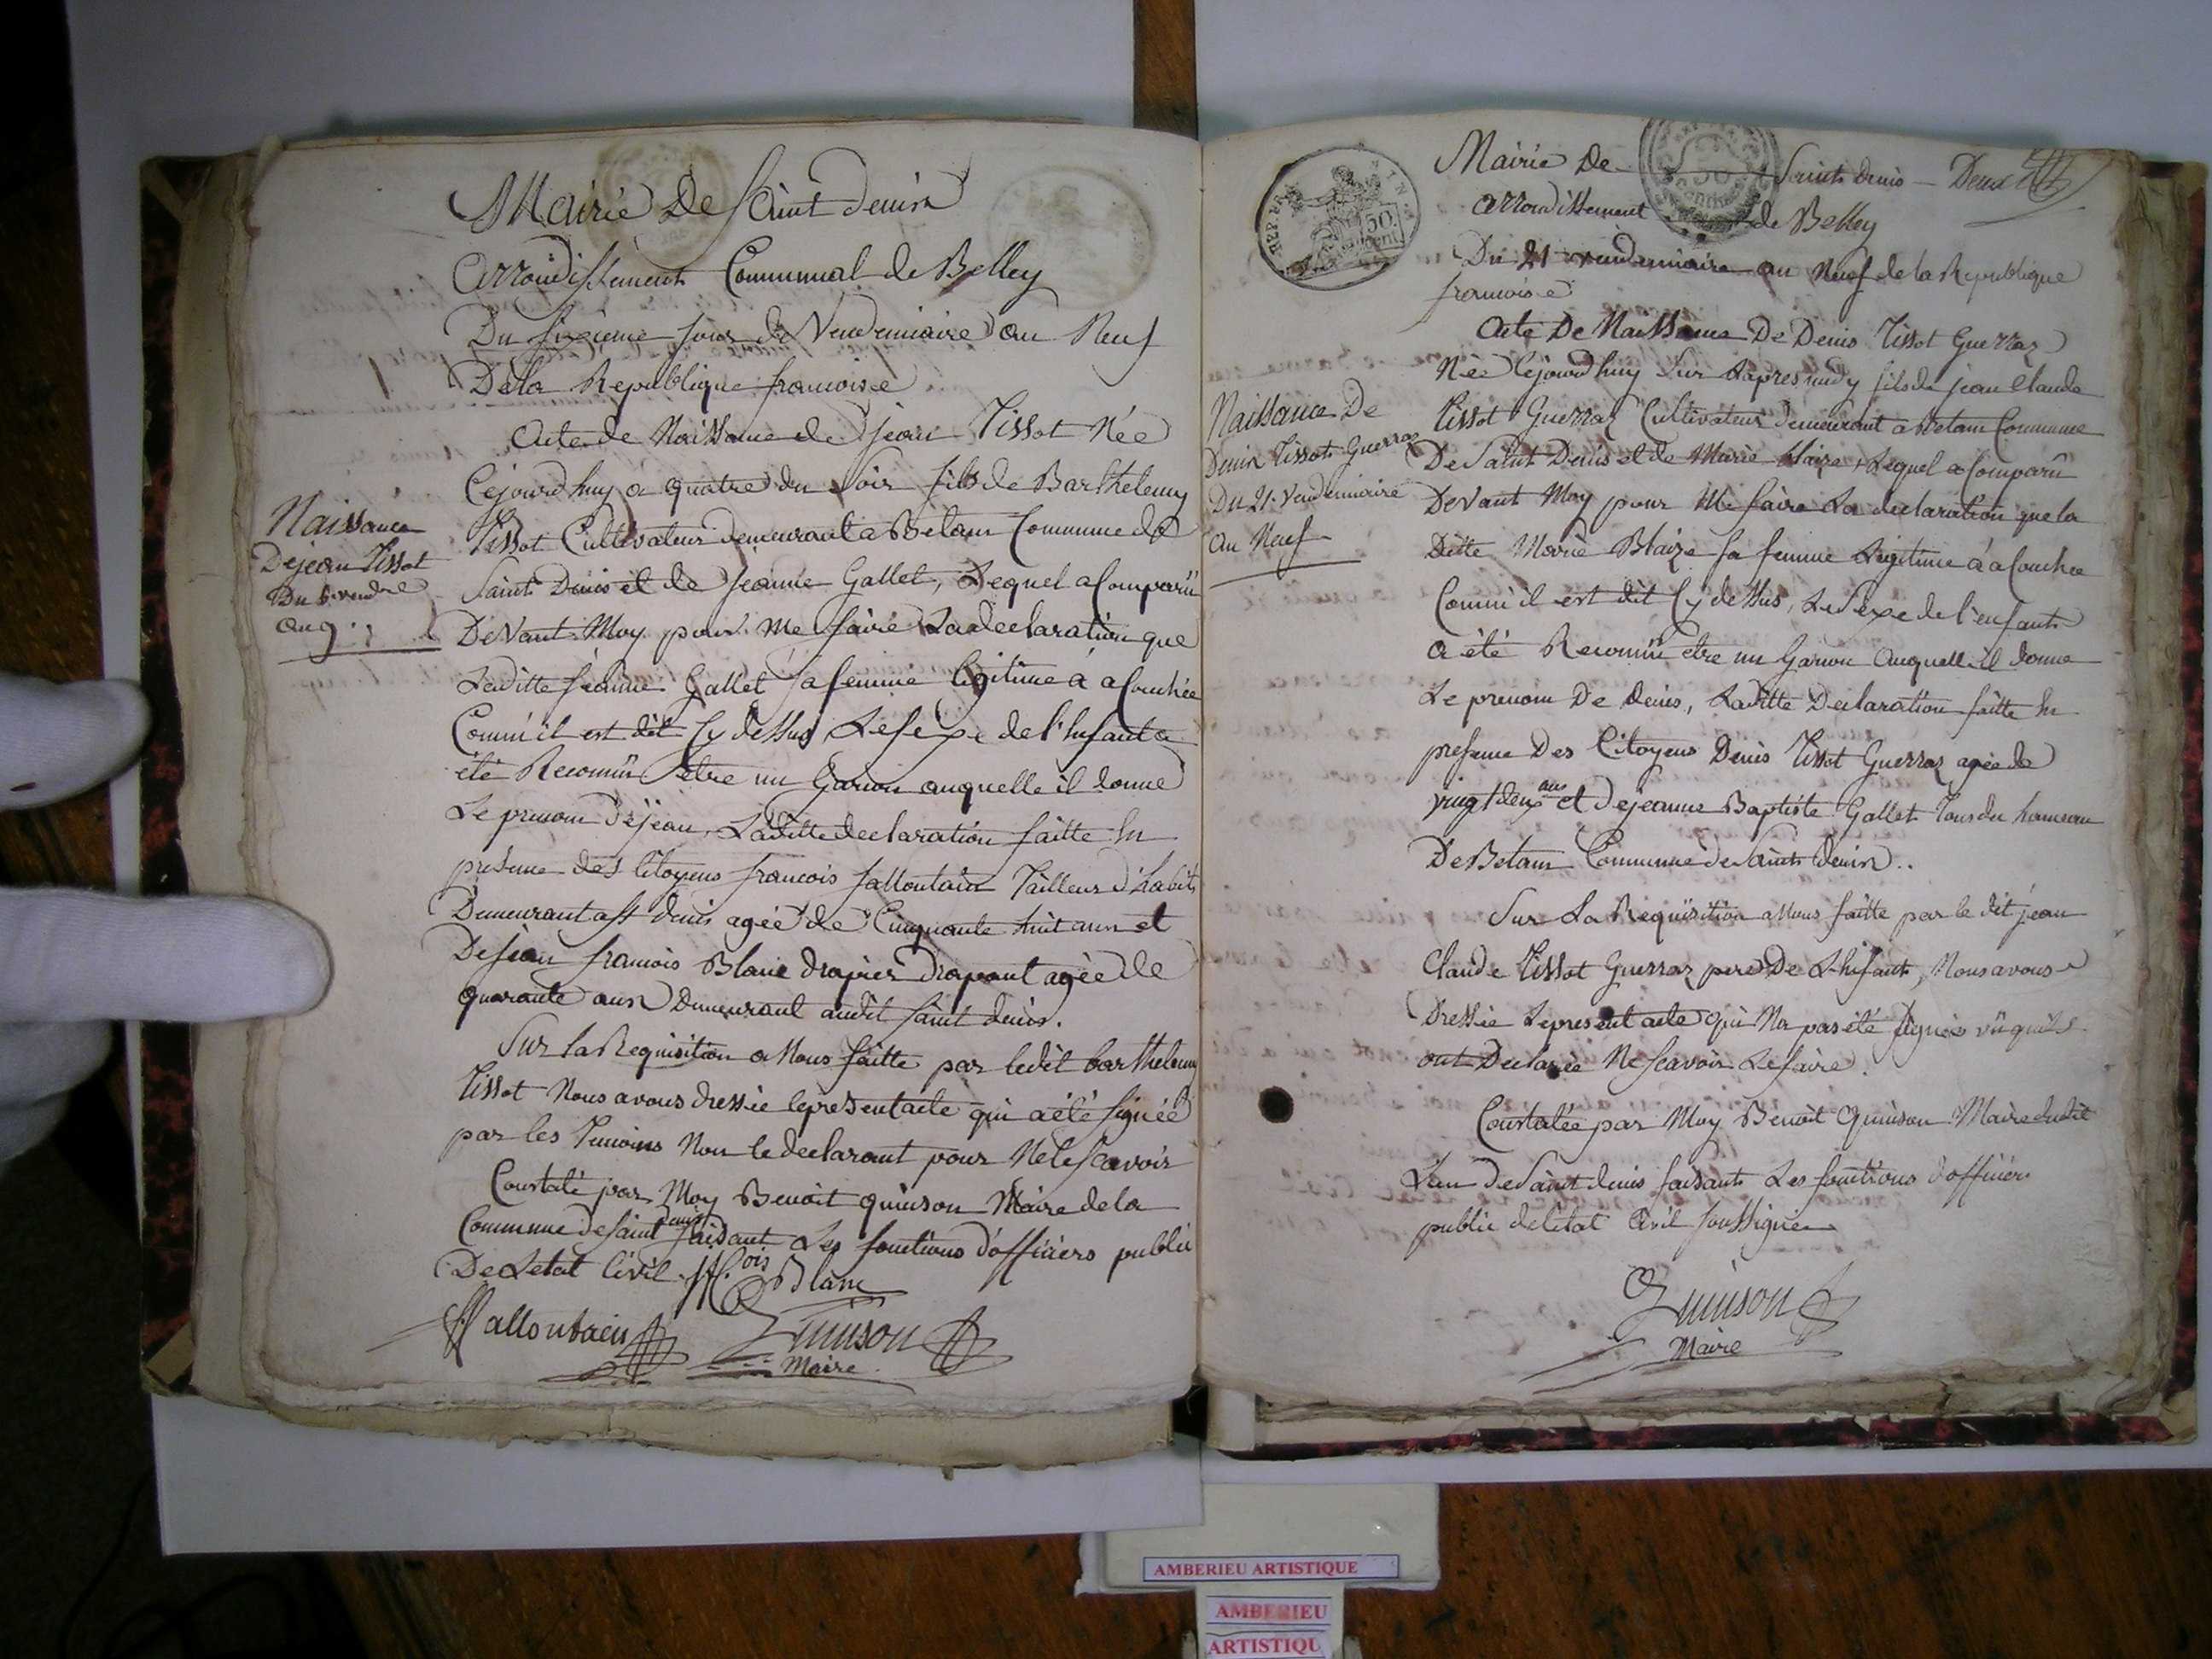 Mairie De Saint denis
Arrondissement Communal de Belley
Du sixieme Jour de Vendemiaire an Neuf
De la Republique francoise
Acte de Naissance de jean Tissot Née
Cejourd'huy a quatre du Soir fils de Barthelemy
Naissance
De jean Tissot
Du 6 vendre
an 9
Tissot Cultivateur demeurant a Betam Commune de
Saint Denis et de Jeanne Gallet, Lequel a Comparu
Devant Moy pour me faire La declaration que
Laditte jeanne Gallet Sa femme legitime à acouchée
Comm'il est dit Cy dessus, Le sexe de l'Enfant a
été Reconnû etre un Garcon auquelle il donne
Le prenom De jean, Laditte declaration faitte En
presence des Citoyens francois Sallontain Tailleur d'habits
Demeurant a St denis agée de Cinquante huit ans et
De jean francois Blanc drapier drapant agée de
quarante ans Demeurant audit Saint denis.
Sur la Requisition a Nous faitte par ledit barthelemy
Tissot Nous avons dressée le present acte qui a été Signée
par les Temoins Non le declarant pour Ne le Scavoir
Constaté par Moy Benoit quinson Maire de la
Commune de Saint denis faisant Les fonctions d'officiers public
De Letat Civil. Blanc
Sallontain Quinson
Maire
Mairie De Saint denis Deux
arrondissement de Belley
Du 21 vendemiaire an Neuf de la Republique
francoise
Acte De Naissance De Denis Tissot Guerraz
Née Cejourd'huy Sur Lapres midy fils de jean Claude
Naissance De
Denis Tissot Guerraz
Du 21 Vendemiaire
an Neuf
Tissot Guerraz Cultivateur demeurant a Betam Commune
De Saint Denis et de Marie Blaize, Lequel a Comparû
Devant Moy pour Me faire La declaration que la
Ditte Marie Blaize Sa femme Legitime à acouchée
Comm'il est dit Cy dessus, Le sexe de l'enfant
a été Reconnû etre un Garcon auquelle il donne
Le prenom De denis, Laditte Declaration faitte En
presence Des Citoyens Denis Tissot Guerraz agée de
vingt deux ans et De jeanne Baptiste Gallet Tous du hameau
De Betam Commune de Saint denis..
Sur La Requisition a Nous faitte par le dit jean
Claude Tissot Guerraz pere De L'Enfant, Nous avons
Dressée Le present acte qui Na pas été Signée vû quils
ont Declarée Ne Scavoir Le faire.
Constatée par Moy Benoit Quinson Maire dudit
Lieu de Saint denis faisant Les fonctions d'officier
public de létat Civil Soussignée
Quinson
Maire
REP. FRA.
50.
cent
AMBERIEU ARTISTIQUE
AMBERIEU
ARTISTIQU